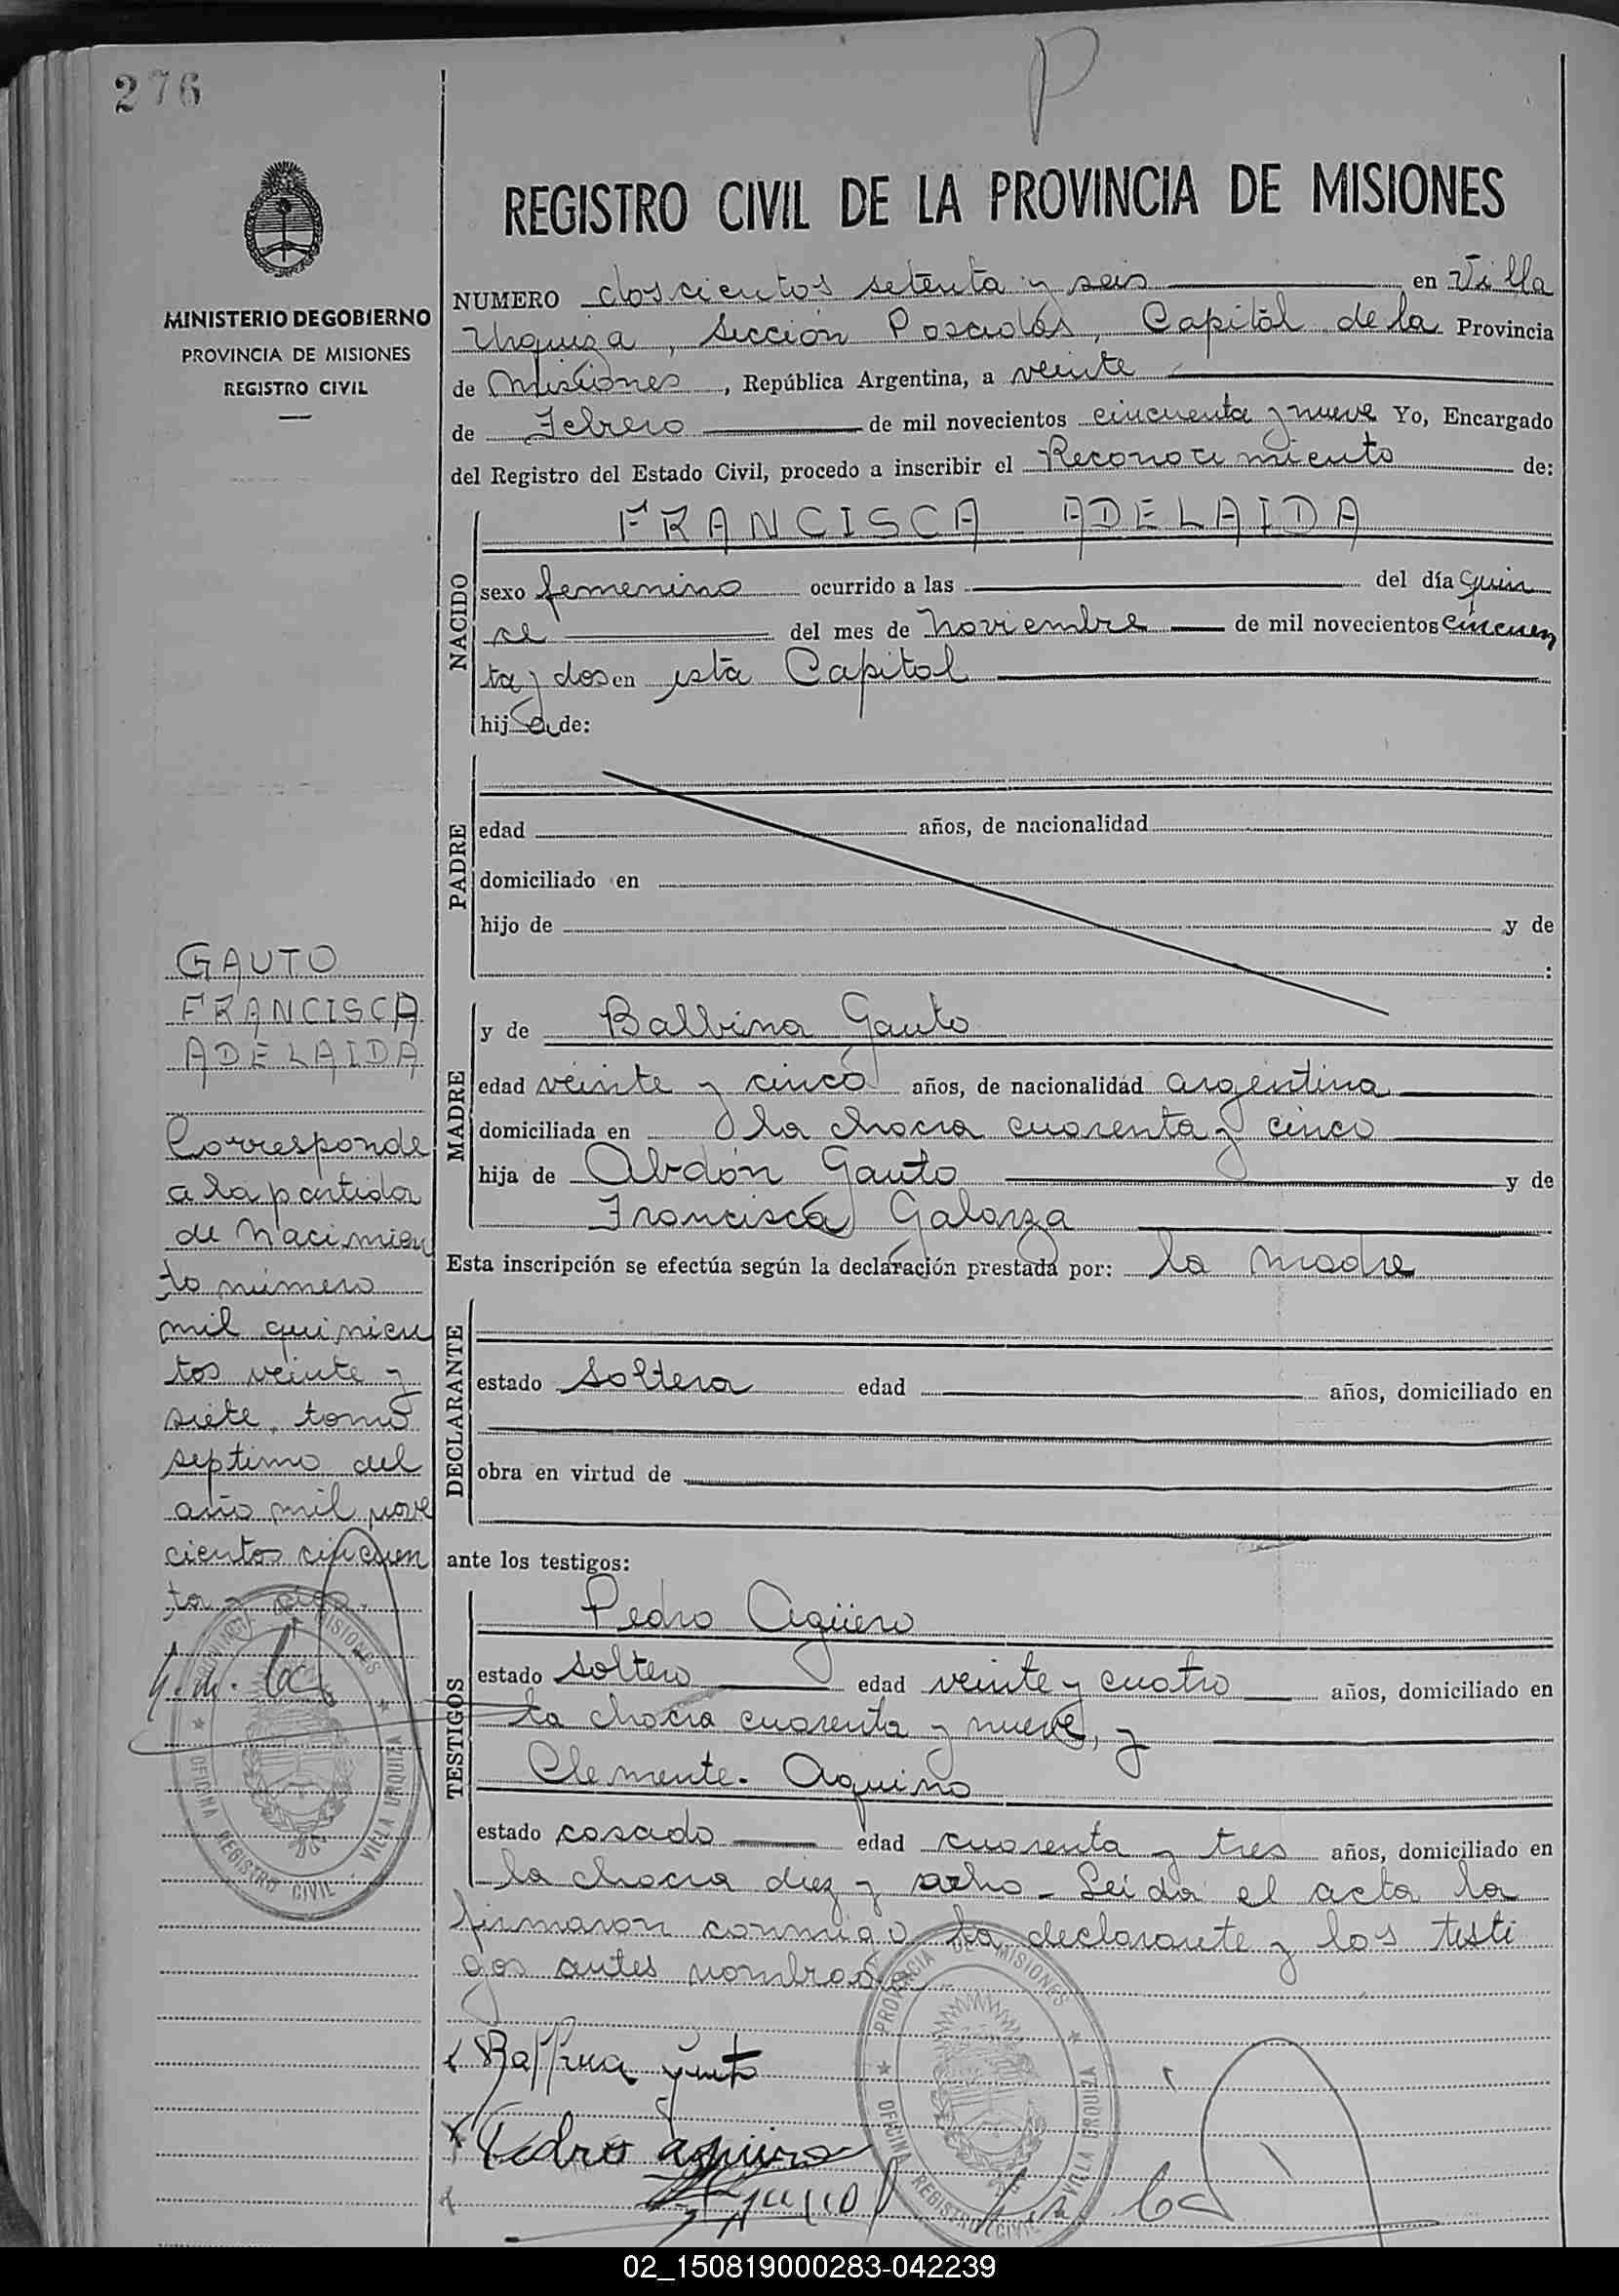 276
P
MINISTERIO DE GOBIERNO
PROVINCIA DE MISIONES
REGISTRO CIVIL
REGISTRO CIVIL DE LA PROVINCIA DE MISIONES
NUMERO doscientos setenta y seis en Villa
Urquiza, sección Posadas, Capital de la Provincia
de Misiones, República Argentina, a veinte
de Febrero de mil novecientos cincuenta y nueve Yo, Encargado
del Registro del Estado Civil, procedo a inscribir el Reconocimiento de:
NACIDO
FRANCISCA ADELAIDA
sexo femenino ocurrido a las del día quin
ce del mes de Noviembre de mil novecientos cincuen
ta y dos en esta Capital
hija de:
PADRE
edad años, de nacionalidad
domiciliado en
hijo de y de
:
MADRE
y de Balbina Gauto
edad veinte y cinco años, de nacionalidad argentina
domiciliada en la chacra cuarenta y cinco
hija de Abdón Gauto y de
Francisca Galarza
Esta inscripción se efectúa según la declaración prestada por: la madre
DECLARANTE
estado soltera edad años, domiciliado en
obra en virtud de
ante los testigos:
TESTIGOS
Pedro Agüero
estado soltero edad veinte y cuatro años, domiciliado en
la chacra cuarenta y nueve, y
Clemente Aquino
estado casado edad cuarenta y tres años, domiciliado en
la chacra diez y ocho - Leida el acta la
firmaron conmigo la declarante y los testi
gos antes nombrados
Pedro Aguero
PROVINCIA DE MISIONES
OFICINA REGISTRO CIVIL - VILLA URQUIZA
GAUTO
FRANCISCA
ADELAIDA
Corresponde
a la partida
de Nacimien
to número
mil quinien
tos veinte y
siete, tomo
septimo del
año mil nove
cientos cincuen
ta y dos.
PROVINCIA DE MISIONES
OFICINA REGISTRO CIVIL - VILLA URQUIZA
02_150819000283-042239